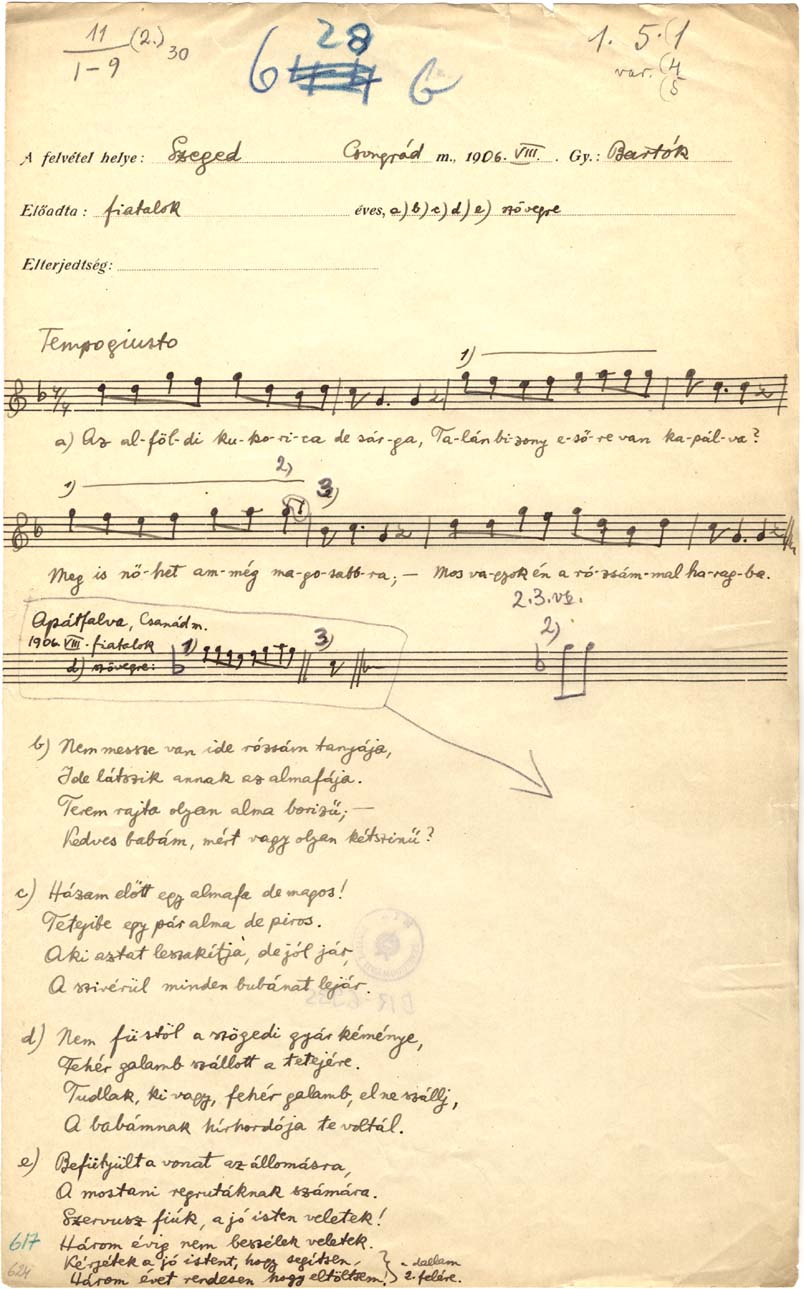 11 (2.) 30
1-9
6 28 6
1. 5. (1
var. (4
(5
A felvétel helye: Szeged Csongrád m., 1906. VIII. Gy.: Bartók
Előadta: fiatalok éves, a) b) c) d) e) szövegre
Elterjedtség:
Tempogiusto
1)
4/4
a) Az al-föl-di ku-ko-ri-ca de sár-ga, Ta-lán bi-zony e-ső-re van ka-pál-va?
1) 2) 3)
Meg is nő-het am-még ma-go-sabb-ra; — Mos va-gyok én a ró-zsám-mal ha-rag-ba.
2. 3. vsz.
Apátfalva, Csanád m.
1906. VIII. fiatalok
d) szövegre: 1) 3) 2)
b) Nem messze van ide rózsám tanyája,
Ide látszik annak az almafája.
Terem rajta olyan alma borizű; —
Kedves babám, mért vagy olyan kétszinű?
c) Házam előtt egy almafa de magos!
Tetejibe egy pár alma de piros.
Aki aztat leszakítja, de jól jár,
A szivérül minden bubánat lejár.
d) Nem füstöl a szögedi gyár kéménye,
Fehér galamb szállott a tetejére.
Tudlak, ki vagy, fehér galamb, el ne szállj,
A babámnak hírhordója te voltál.
e) Befütyült a vonat az állomásra,
A mostani regrutáknak számára.
Szervusz fiúk, a jó isten veletek!
617 Három évig nem beszélek veletek.
624 Kérjétek a jó istent, hogy segítsen, } a dallam
Három évet rendesen hogy eltöltsem! } 2. felére.